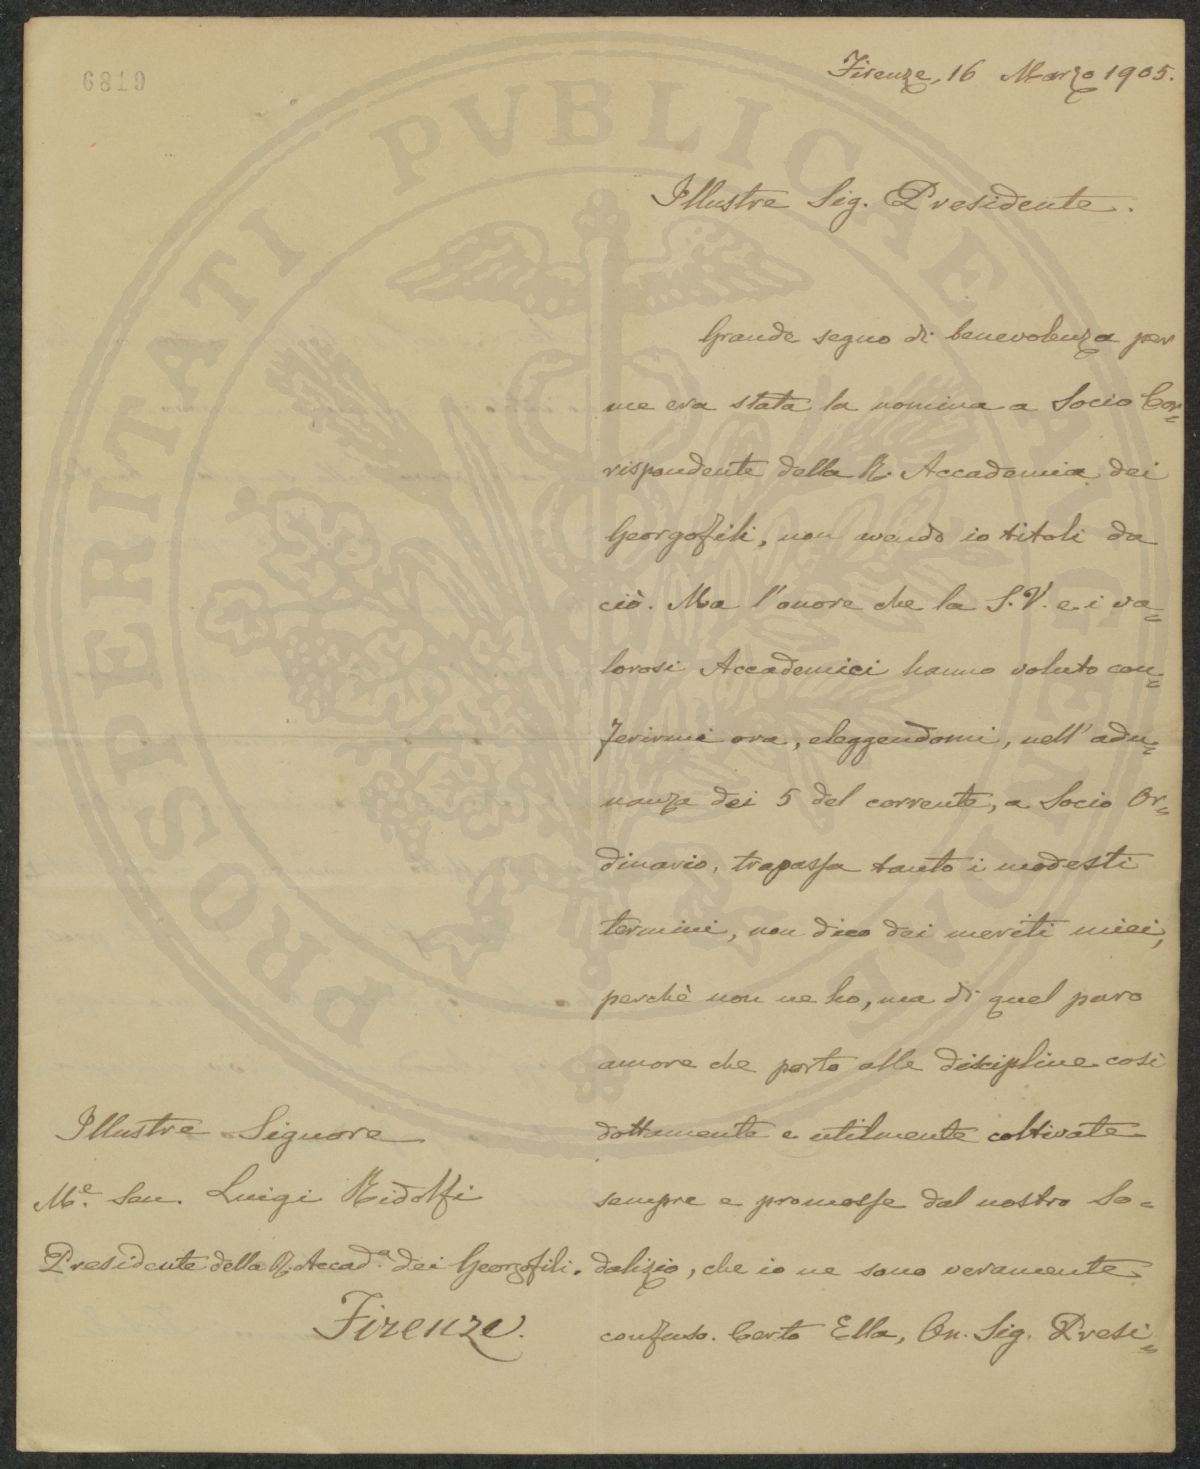 6819
Firenze, 16 Marzo 1905.
Illustre Sig. Presidente.
Grande segno di benevolenza per
me era stata la nomina a Socio Cor=
rispondente della R. Accademia dei
Georgofili, non avendo io titoli da
ciò. Ma l'onore che la S.V. e i va=
lorosi Accademici hanno voluto con=
ferirmi ora, eleggendomi, nell'adu=
nanza dei 5 del corrente, a Socio Or=
dinario, trapassa tanto i modesti
termini, non dico dei meriti miei,
perchè non ne ho, ma di quel puro
amore che porto alle discipline così
dottamente e utilmente coltivate
sempre e promosse dal nostro So=
dalizio, che io ne sono veramente
confuso. Certo Ella, On. Sig. Presi=
Illustre Signore
M.e Sen. Luigi Ridolfi
Presidente della R. Accad.a dei Georgofili.
Firenze.
PROSPERITATI PVBLICAE AVGENDAE